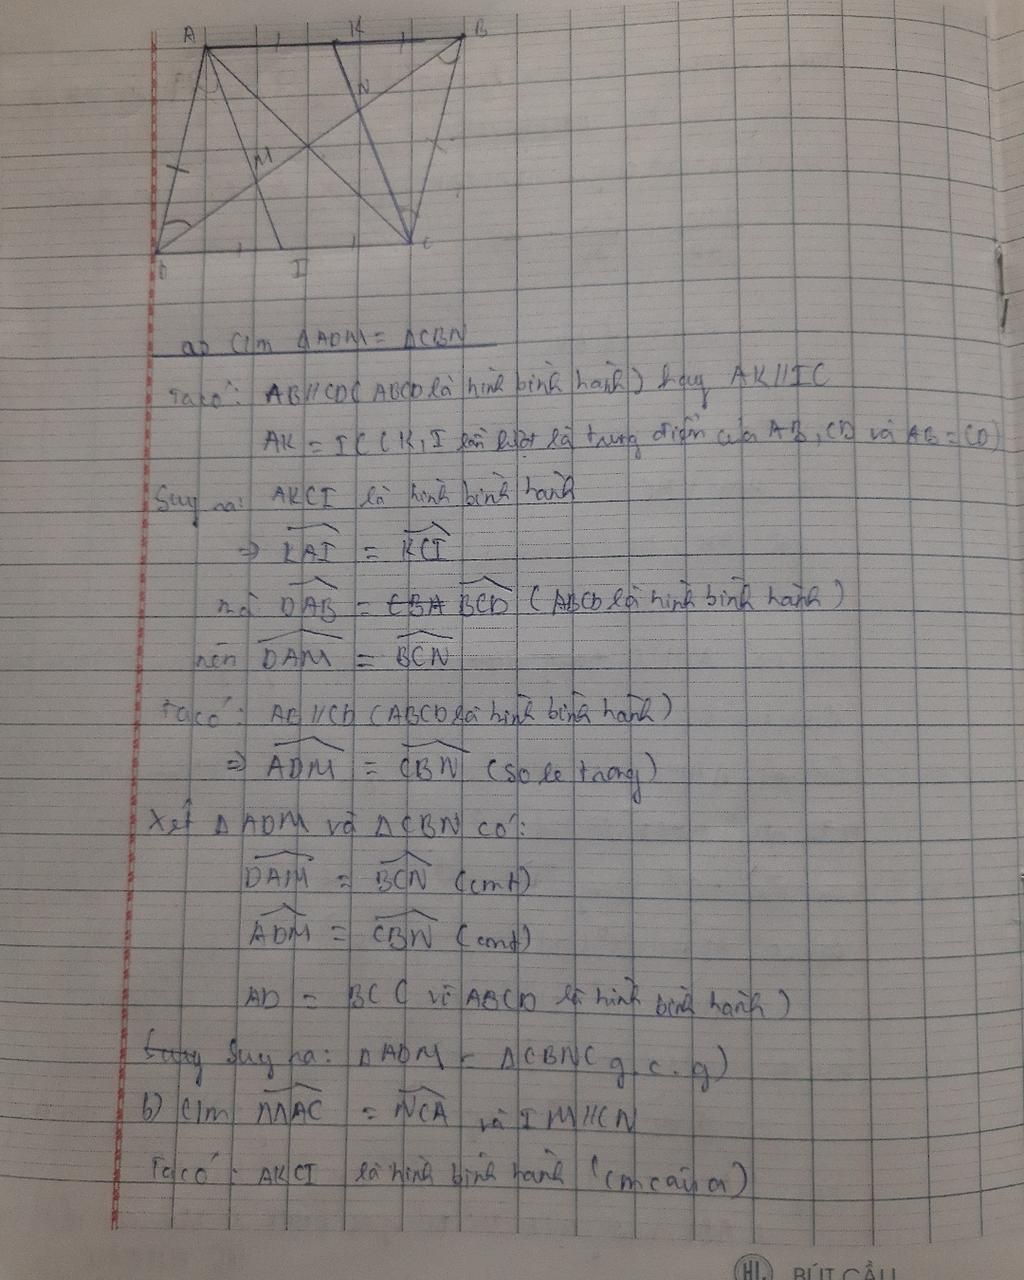 A K B
N
M
D I C
a) C/m ΔADM = ΔCBN
Ta có: AB//CD ( ABCD là hình bình hành ) hay AK//IC
AK = IC ( K, I lần lượt là trung điểm của AB, CD và AB = CD)
Suy ra: AKCI là hình bình hành
=> KAI = KCI
mà DAB = CBA BCD ( ABCD là hình bình hành )
nên DAM = BCN
Ta có: AB//CD ( ABCD là hình bình hành )
=> ADM = CBN (so le trong)
Xét Δ ADM và ΔCBN có:
DAM = BCN (cmt)
ADM = CBN (cmt)
AD = BC ( vì ABCD là hình bình hành )
Suy ra: ΔADM = ΔCBN ( g.c.g)
b) C/m MAC = NCA và IM//CN
Ta có: AKCI là hình bình hành (cm câu a)
HL BÚT CẦU